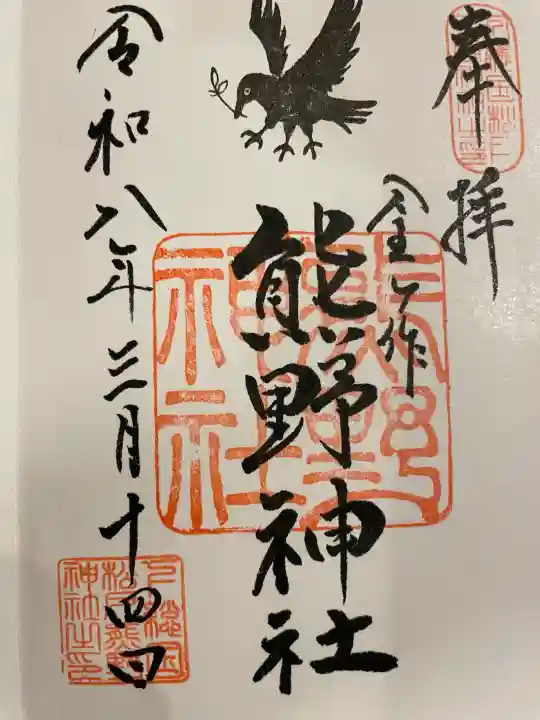 奉拝
金ヶ作
熊野神社
令和八年三月十四日
熊野神社
下総国松戸熊野神社之印